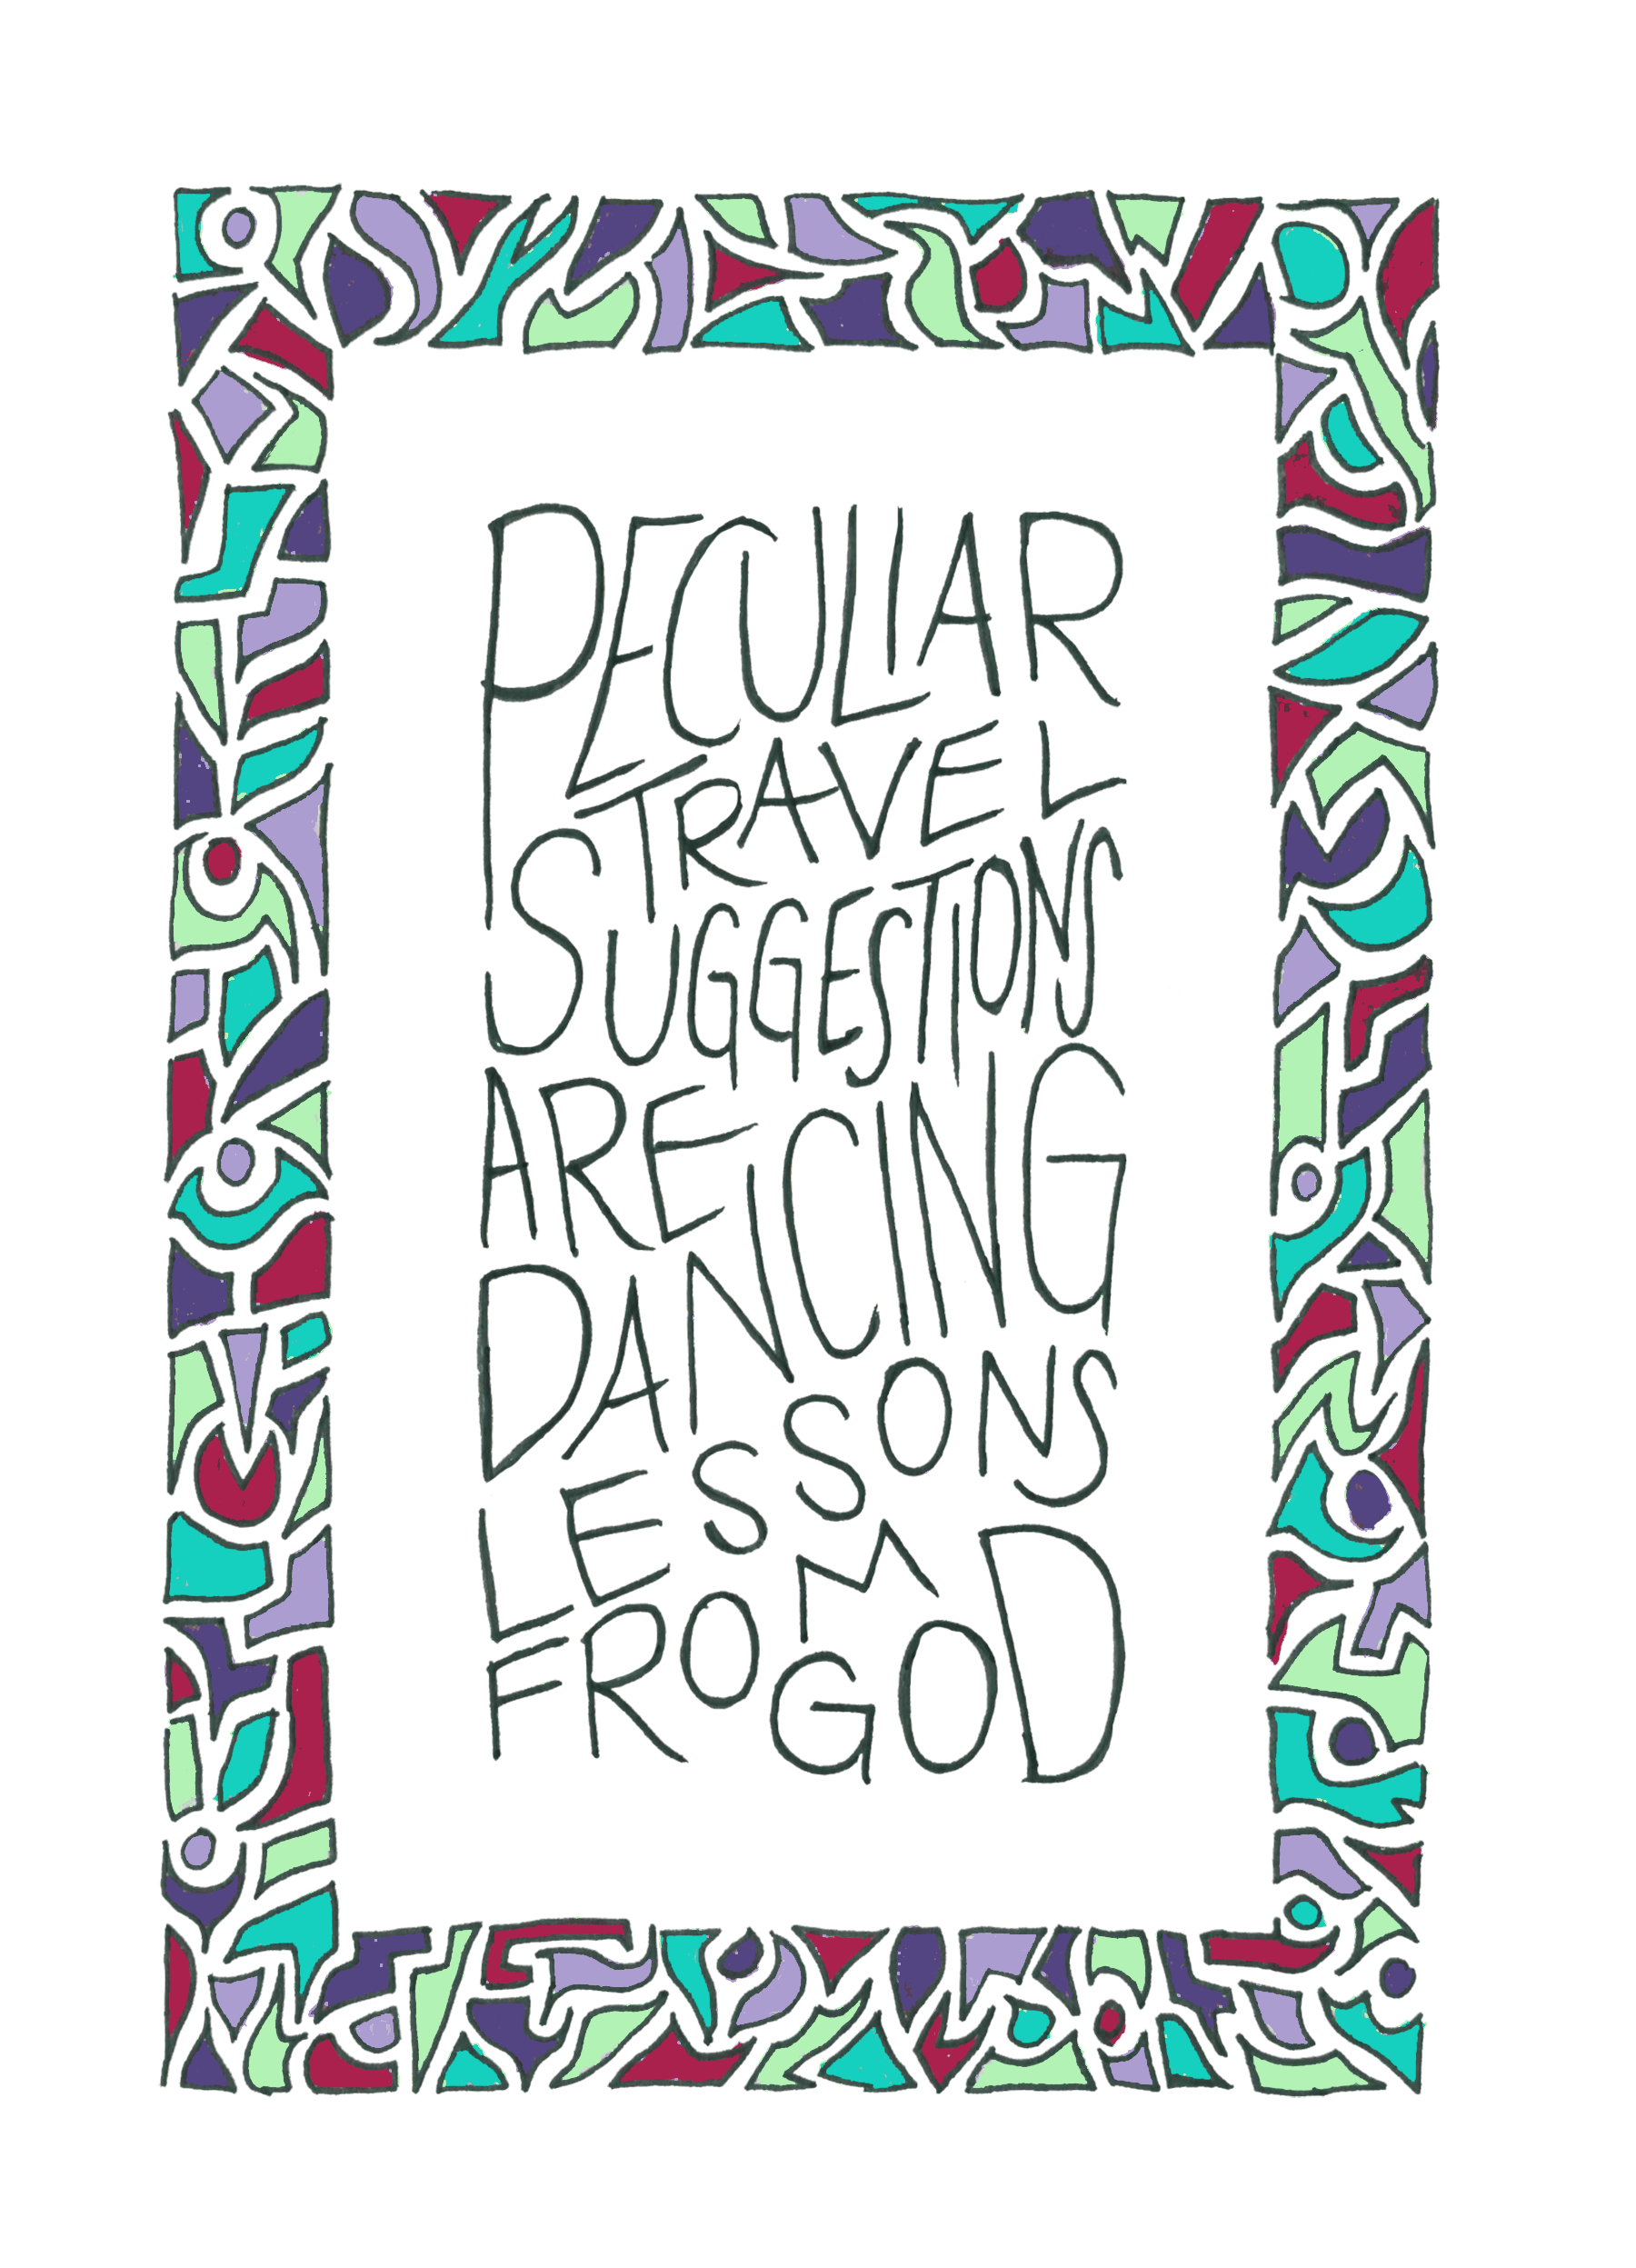 PECULIAR
TRAVEL
SUGGESTIONS
ARE
DANCING
LESSONS
FROM
GOD